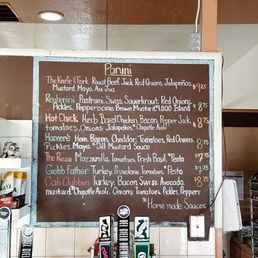 Panini
The Knife & Fork Roast Beef, Jack, Red Onions, Jalapeños
Mustard, Mayo, Au Jus $9.25
Pastrami, Swiss, Sauerkraut, Red Onions,
Pickles, Pepperoncini, Brown Mustard, 1,000 Island $8.75
Hot Chick Herb Baked Chicken, Bacon, Pepper Jack,
tomatoes, Onions, Jalapeños, Chipotle Aioli $8.75
Ham, Bacon, Cheddar, Tomatoes, Red Onions,
Pickles, Mayo, Dill Mustard Sauce $8.75
The Ricco Mozzarella, Tomatoes, Fresh Basil, Pesto
Turkey, Provolone, Tomatoes, Pesto
Cali Clubbin Turkey, Bacon, Swiss, Avocado,
mustard, Chipotle Aioli, Onions, Tomatoes, Pickles, Peppers
*Homemade Sauces